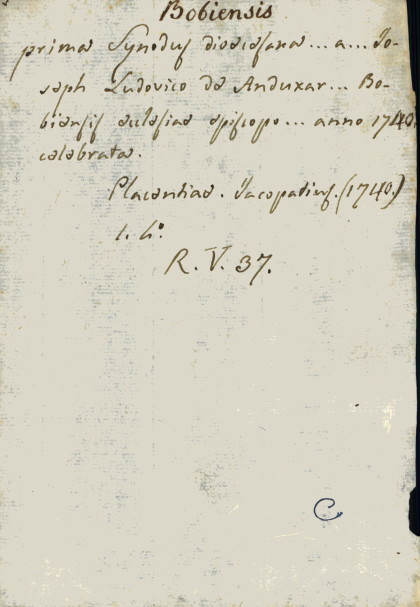 Bobiensis
prima Synodus dioecesana... a... Jo-
seph Ludovico de Anduxar... Bo-
biensis ecclesiae episcopo... anno 1740
celebrata.
Placentiae. Jacopatius. (1740.)
1. 4º
R. V. 37.
C